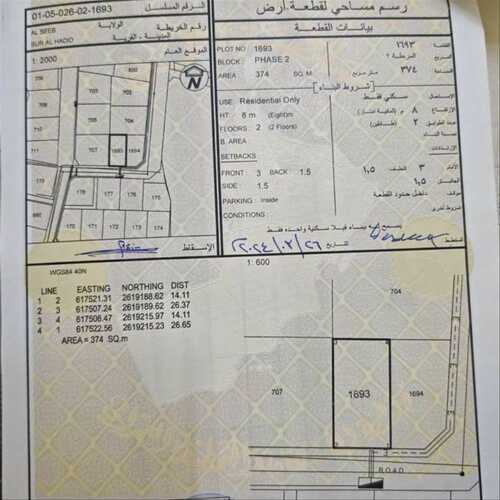 رسم مساحي لقطعة أرض
01-05-026-02-1693 الرقم المسلسل
بيانات القطعة
AL SEEB الولاية
BUR AL HADID المدينة - القرية
رقم الخريطة
الموقع العام
1: 2000
N
PLOT NO : 1693 ١٦٩٣ القطعة
BLOCK : PHASE 2 المرحلة ٢ المربع
AREA : 374 SQ. M متر مربع ٣٧٤ المساحة
شروط البناء
USE: Residential Only سكني فقط الإستعمال
HT: 8 m (Eight)m ٨ م
FLOORS: 2 (2 Floors) ٢ (طابقين) عدد الطوابق
B. AREA
SETBACKS
FRONT : 3 BACK : 1.5 الأمام ٣ الخلف ١,٥
SIDE : 1.5 ١,٥
PARKING : Inside داخل حدود القطعة
CONDITIONS : شروط أخرى
703
702
705
701
704
711
707
1693
1694
178
177
176
175
174
173
172
171
الإسقاط
التاريخ
٢٠٢٤/٠٢/٢٦
المخطط
1: 600
WGS84 40N
LINE EASTING NORTHING DIST
1 2 617521.31 2619188.62 14.11
2 3 617507.24 2619189.62 26.37
3 4 617508.47 2619215.97 14.11
4 1 617522.56 2619215.23 26.65
AREA = 374 SQ.m
704
707
1693
1694
ROAD